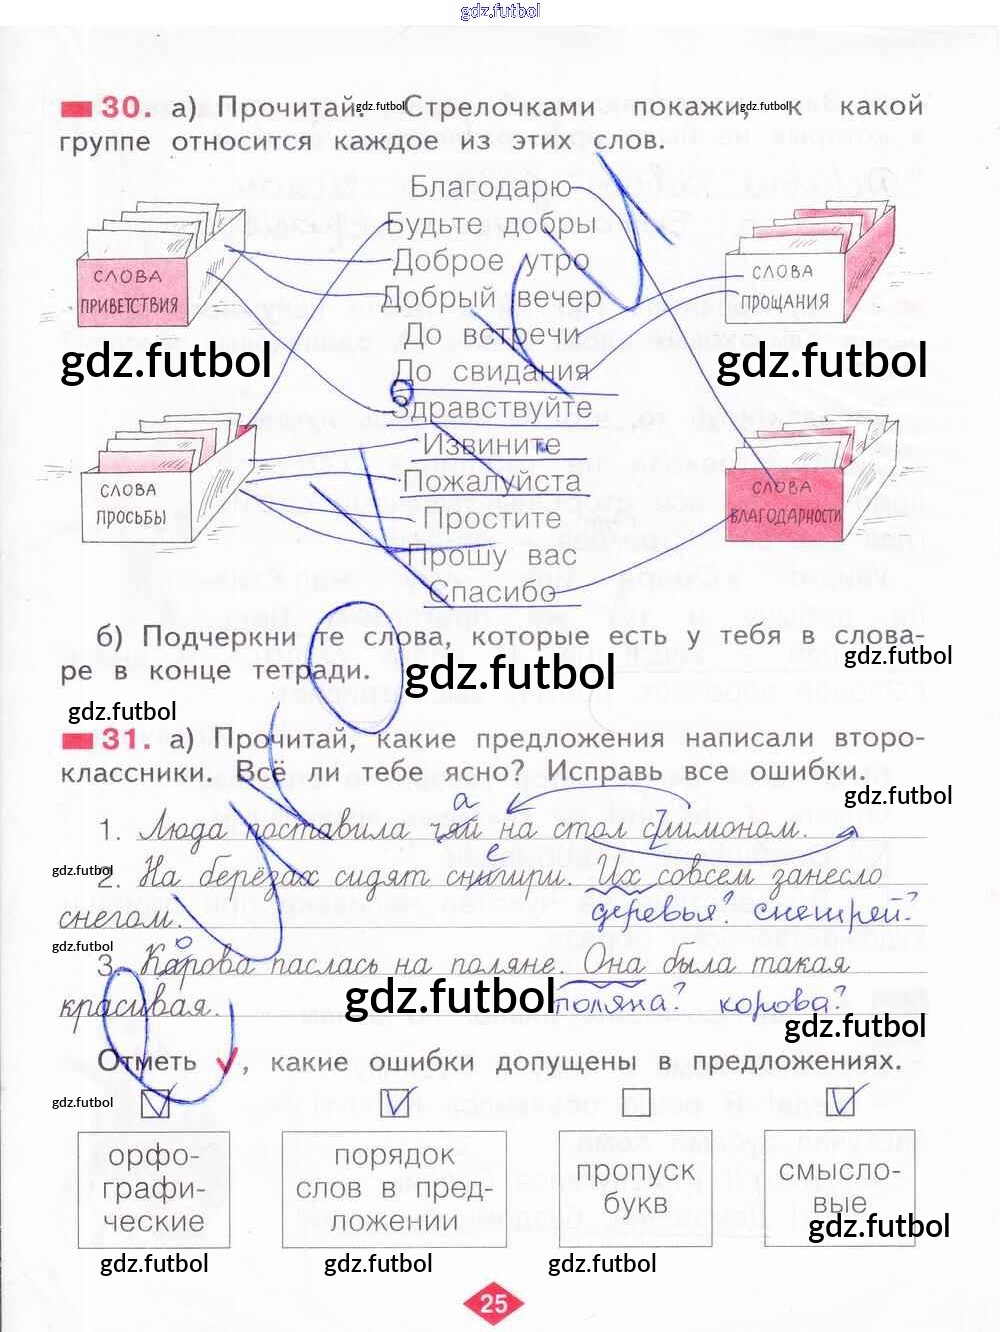 gdz.futbol
30. а) Прочитай. gdz.futbol Стрелочками покажи, gdz.futbol к какой
группе относится каждое из этих слов.
Благодарю
Будьте добры
Доброе утро
Добрый вечер
До встречи
До свидания
Здравствуйте
Извините
Пожалуйста
Простите
Прошу вас
Спасибо
СЛОВА
ПРИВЕТСТВИЯ
СЛОВА
ПРОЩАНИЯ
gdz.futbol
gdz.futbol
СЛОВА
ПРОСЬБЫ
СЛОВА
БЛАГОДАРНОСТИ
б) Подчеркни те слова, которые есть у тебя в слова-
ре в конце тетради.
gdz.futbol
gdz.futbol
gdz.futbol
31. а) Прочитай, какие предложения написали второ-
классники. Всё ли тебе ясно? Исправь все ошибки.
gdz.futbol
а
1. Люда поставила чяй на стол слимоном.
е
gdz.futbol
2. На берёзах сидят снигири. Их совсем занесло
снегом. деревья? снегирей?
gdz.futbol
о
3. Карова паслась на поляне. Она была такая
красивая. поляна? корова?
gdz.futbol
gdz.futbol
Отметь ✓, какие ошибки допущены в предложениях.
gdz.futbol
орфо-
графи-
ческие
порядок
слов в пред-
ложении
пропуск
букв
смысло-
вые
gdz.futbol
gdz.futbol
gdz.futbol
gdz.futbol
25